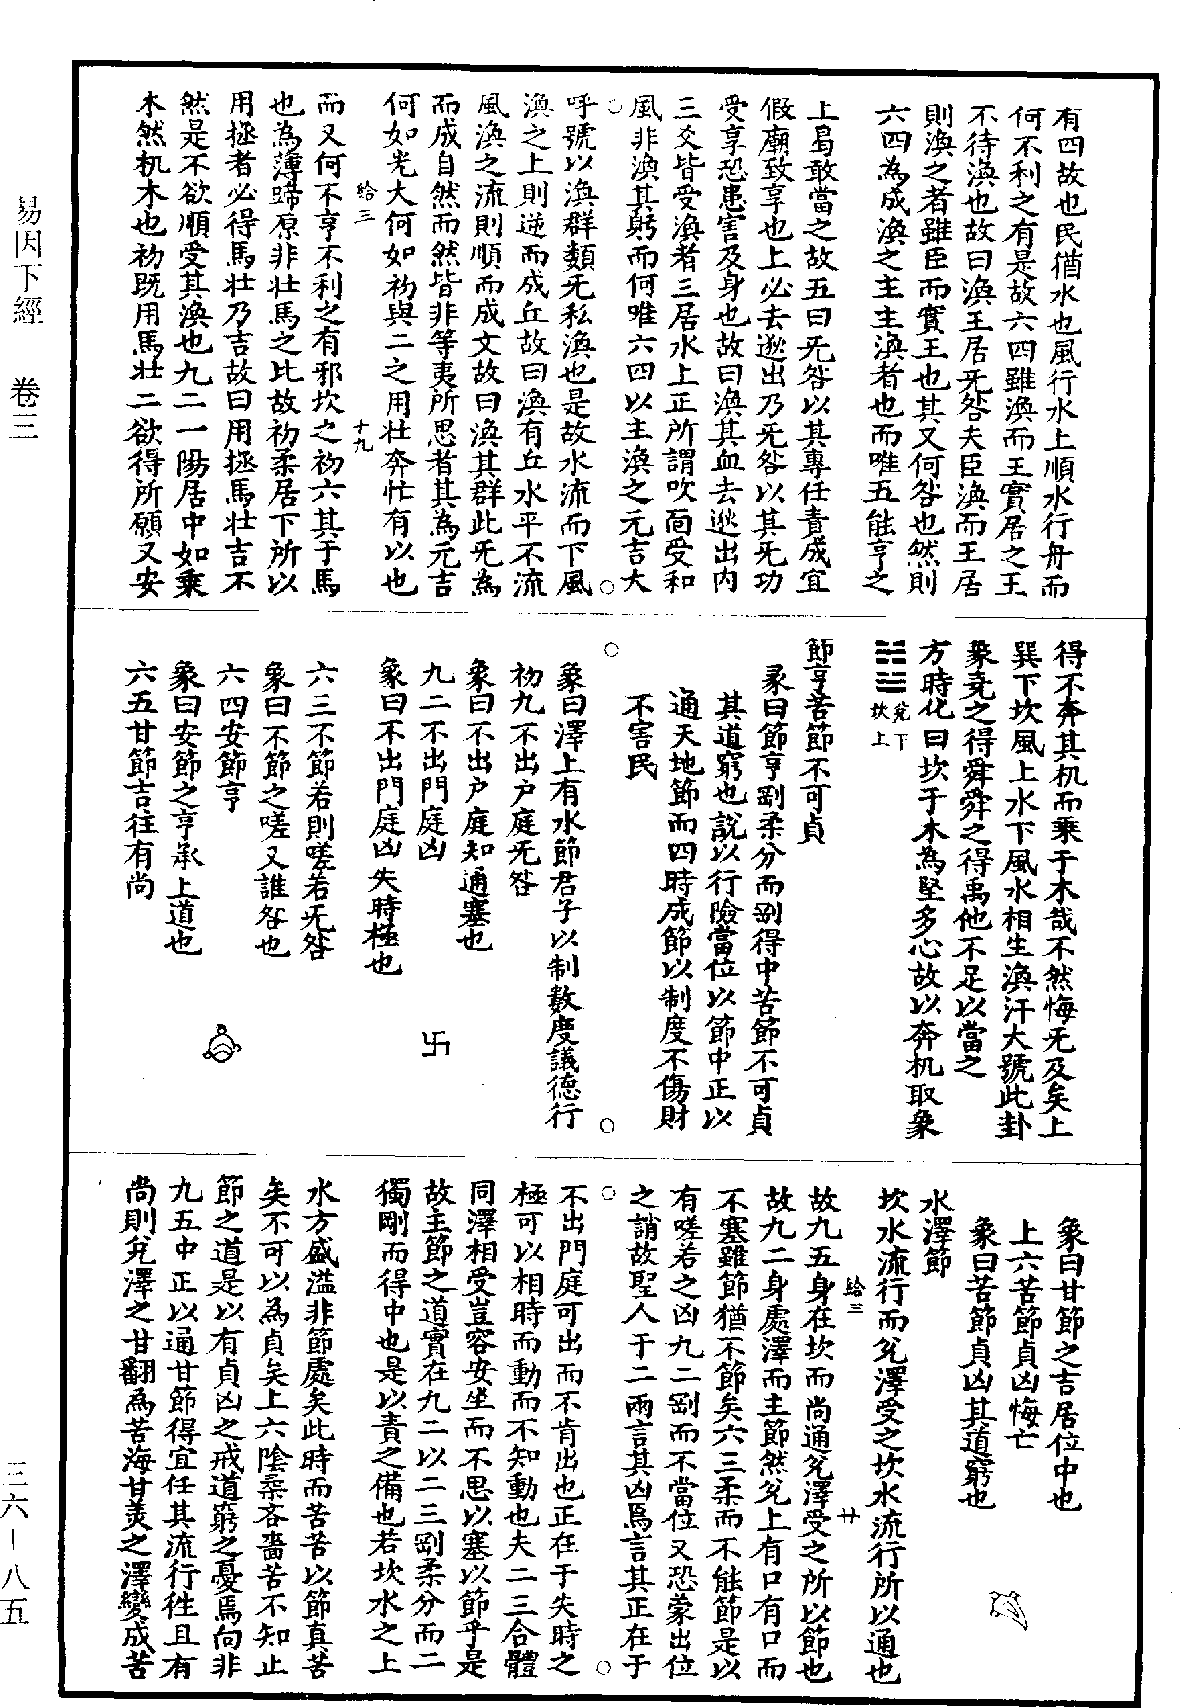 易因下經　卷三
三六－八五
有四故也民猶水也風行水上順水行舟而
何不利之有是故六四雖渙而王實居之王
不待渙也故曰渙王居旡咎夫臣渙而王居
則渙之者雖臣而實王也其又何咎也然則
六四為成渙之主主渙者也而唯五能亨之
上曷敢當之故五曰旡咎以其專任責成宜
假廟致享也上必去逖出乃旡咎以其旡功
受享恐患害及身也故曰渙其血去逖出內
三爻皆受渙者三居水上正所謂吹而受和
風非渙其躬而何唯六四以主渙之元吉大
呼號以渙群類旡私渙也是故水流而下風
渙之上則逆而成丘故曰渙有丘水平不流
風渙之流則順而成文故曰渙其群此旡為
而成自然而然皆非等夷所思者其為元吉
何如光大何如初與二之用壯奔忙有以也
給三　十九
而又何不亨不利之有邪坎之初六其于馬
也為薄蹄原非壯馬之比故初柔居下所以
用拯者必得馬壯乃吉故曰用拯馬壯吉不
然是不欲順受其渙也九二一陽居中如乘
木然机木也初既用馬壯二欲得所願又安
得不奔其机而乘于木哉不然悔旡及矣上
巽下坎風上水下風水相生渙汗大號此卦
象堯之得舜舜之得禹他不足以當之
方時化曰坎于木為堅多心故以奔机取象
䷻兌下
坎上
節亨苦節不可貞
彖曰節亨剛柔分而剛得中苦節不可貞
其道窮也說以行險當位以節中正以
通天地節而四時成節以制度不傷財
不害民
象曰澤上有水節君子以制數度議德行
初九不出户庭旡咎
象曰不出户庭知通塞也
九二不出門庭凶
象曰不出門庭凶失時極也
卐
六三不節若則嗟若旡咎
象曰不節之嗟又誰咎也
六四安節亨
象曰安節之亨承上道也
六五甘節吉往有尚
象曰甘節之吉居位中也
上六苦節貞凶悔亡
象曰苦節貞凶其道窮也
水澤節
坎水流行而兌澤受之坎水流行所以通也
給三　廿
故九五身在坎而尚通兌澤受之所以節也
故九二身處澤而主節然兌上有口有口而
不塞雖節猶不節矣六三柔而不能節是以
有嗟若之凶九二剛而不當位又恐蒙出位
之誚故聖人于二兩言其凶焉言其正在于
不出門庭可出而不肯出也正在于失時之
極可以相時而動而不知動也夫二三合體
同澤相受豈容安坐而不思以塞以節乎是
故主節之道實在九二以二三剛柔分而二
獨剛而得中也是以責之備也若坎水之上
水方盛溢非節處矣此時而苦苦以節真苦
矣不可以為貞矣上六陰柔吝嗇苦不知止
節之道是以有貞凶之戒道窮之憂焉向非
九五中正以通甘節得宜任其流行徃且有
尚則兌澤之甘翻為苦海甘美之澤變成苦